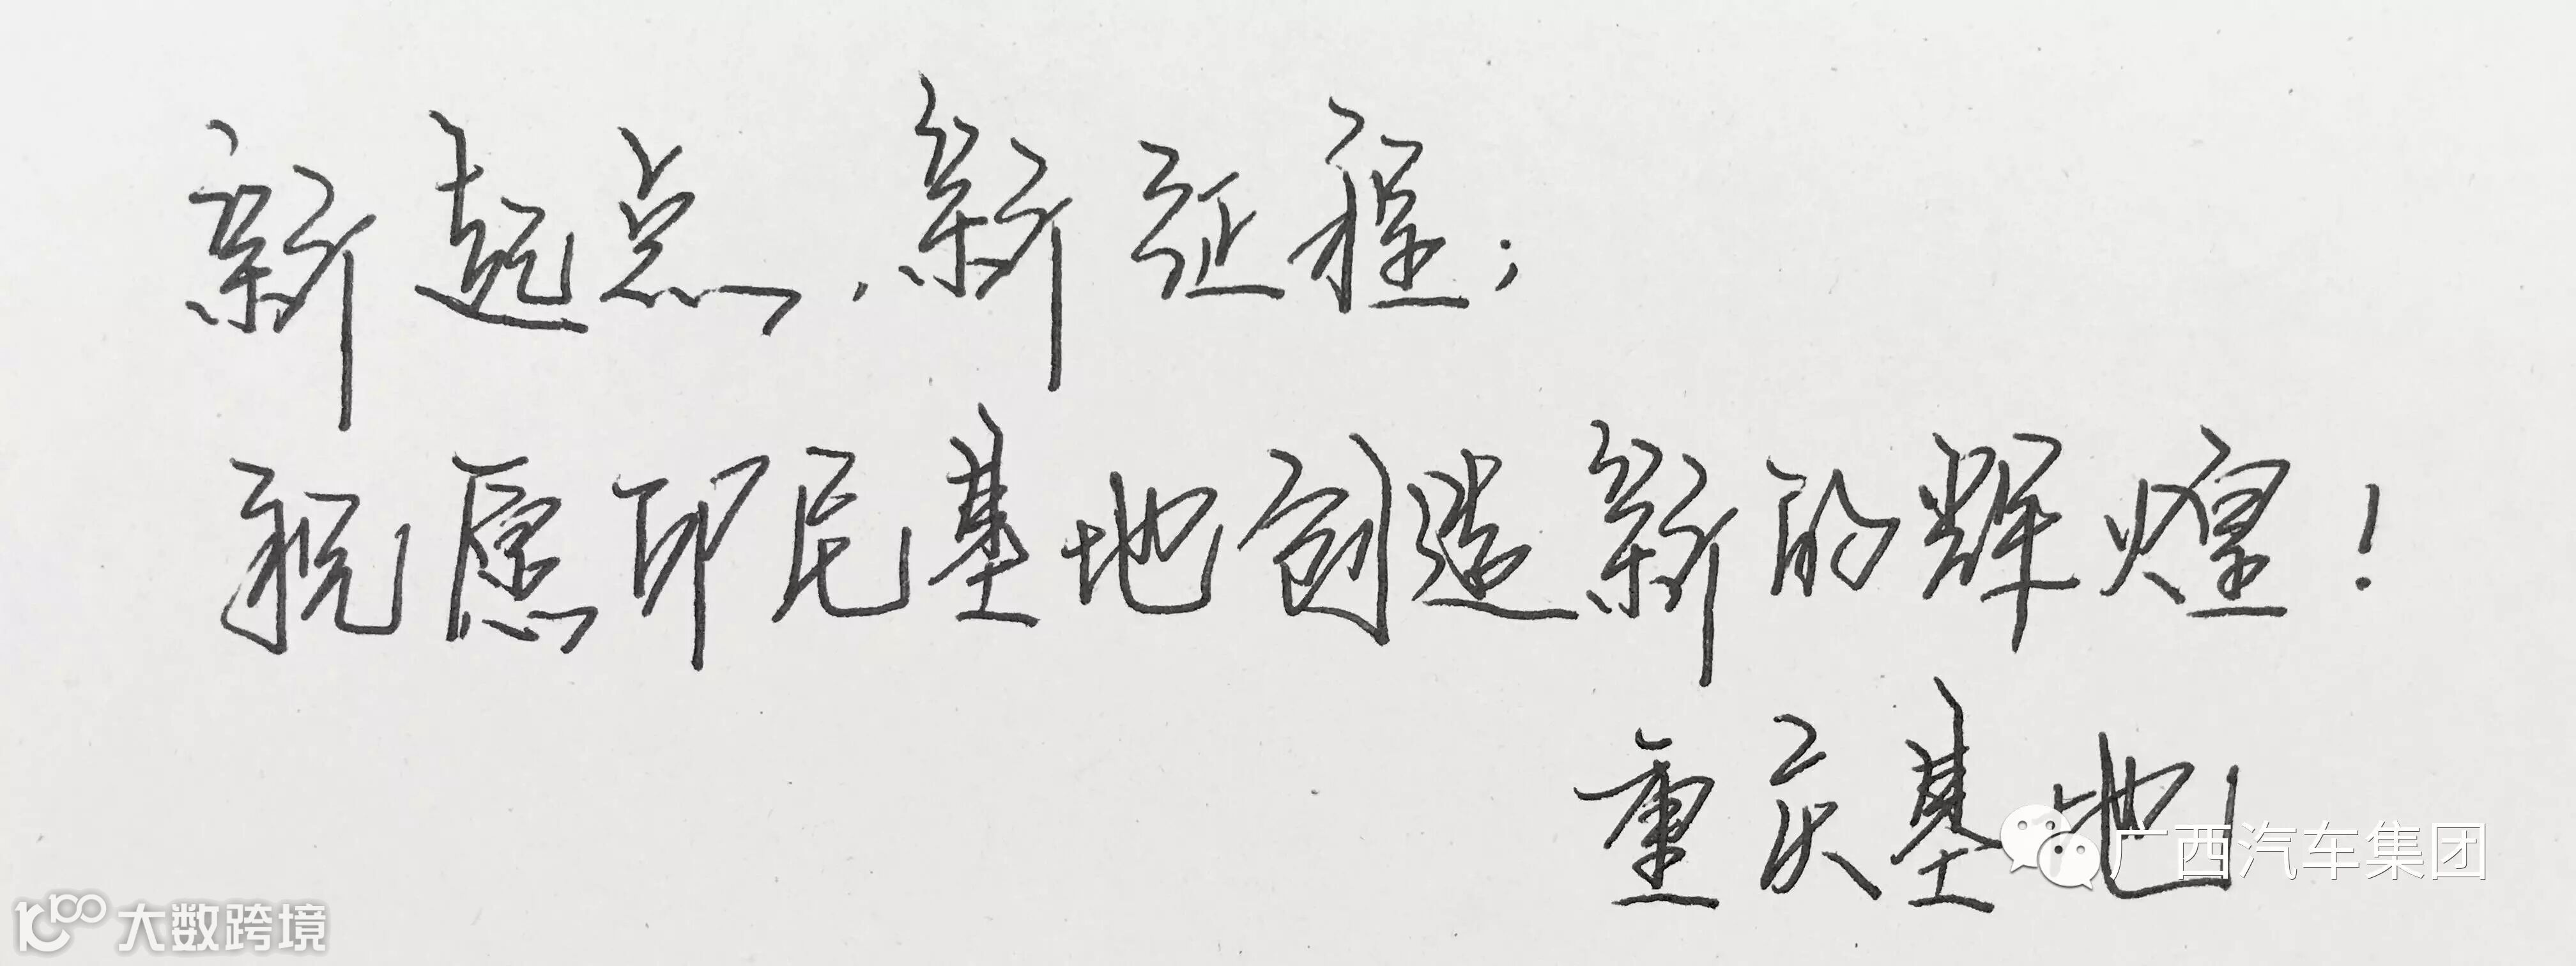 新起点,新征程;
祝愿印尼基地创造新的辉煌!
重庆基地
广西汽车集团
大数跨境